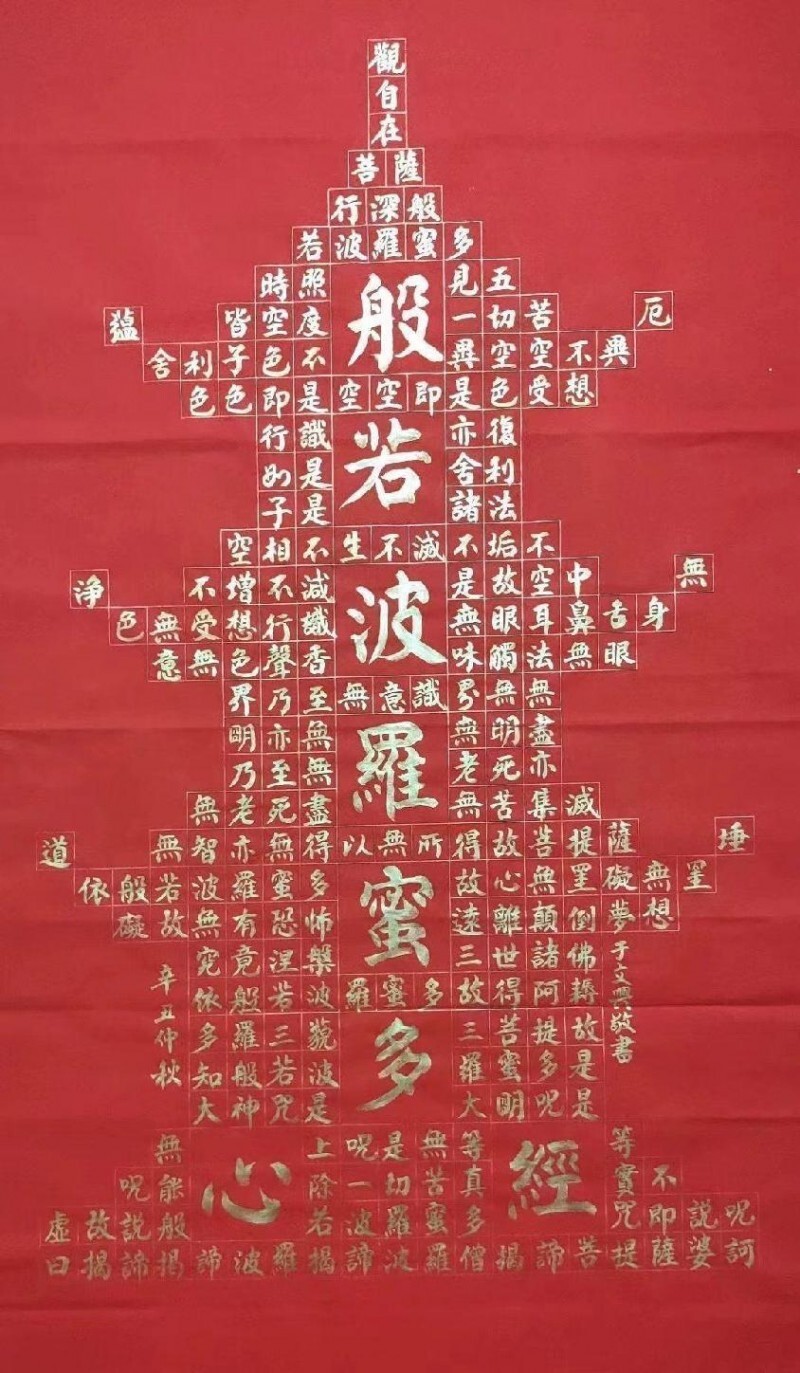 觀
自
在
菩薩
行深般
若波羅蜜多
時照見五
蘊皆空度一切苦厄
舍利子色不異空空不異
色色即是空空即是色受想
行識亦復
如是舍利
子是諸法
空相不生不滅不垢不
淨不增不減是故空中無
色無受想行識無眼耳鼻舌身
意無色聲香味觸法無眼
界乃至無意識界無無
明亦無無明盡
乃至無老死亦
無老死盡無苦集滅
道無智亦無得以無所得故菩提薩埵
依般若波羅蜜多故心無罣礙無罣
礙故無有恐怖遠離顛倒夢想
究竟涅槃三世諸佛
依般若波羅蜜多故得阿耨
多羅三藐三菩提故
知般若波羅蜜多是
大神咒是大明呪是
無上呪是無等等
呪能除一切苦真實不
虛故說般若波羅蜜多咒即說呪
曰揭諦揭諦波羅揭諦波羅僧揭諦菩提薩婆訶
般若波羅蜜多
心經
辛丑仲秋
于文興敬書